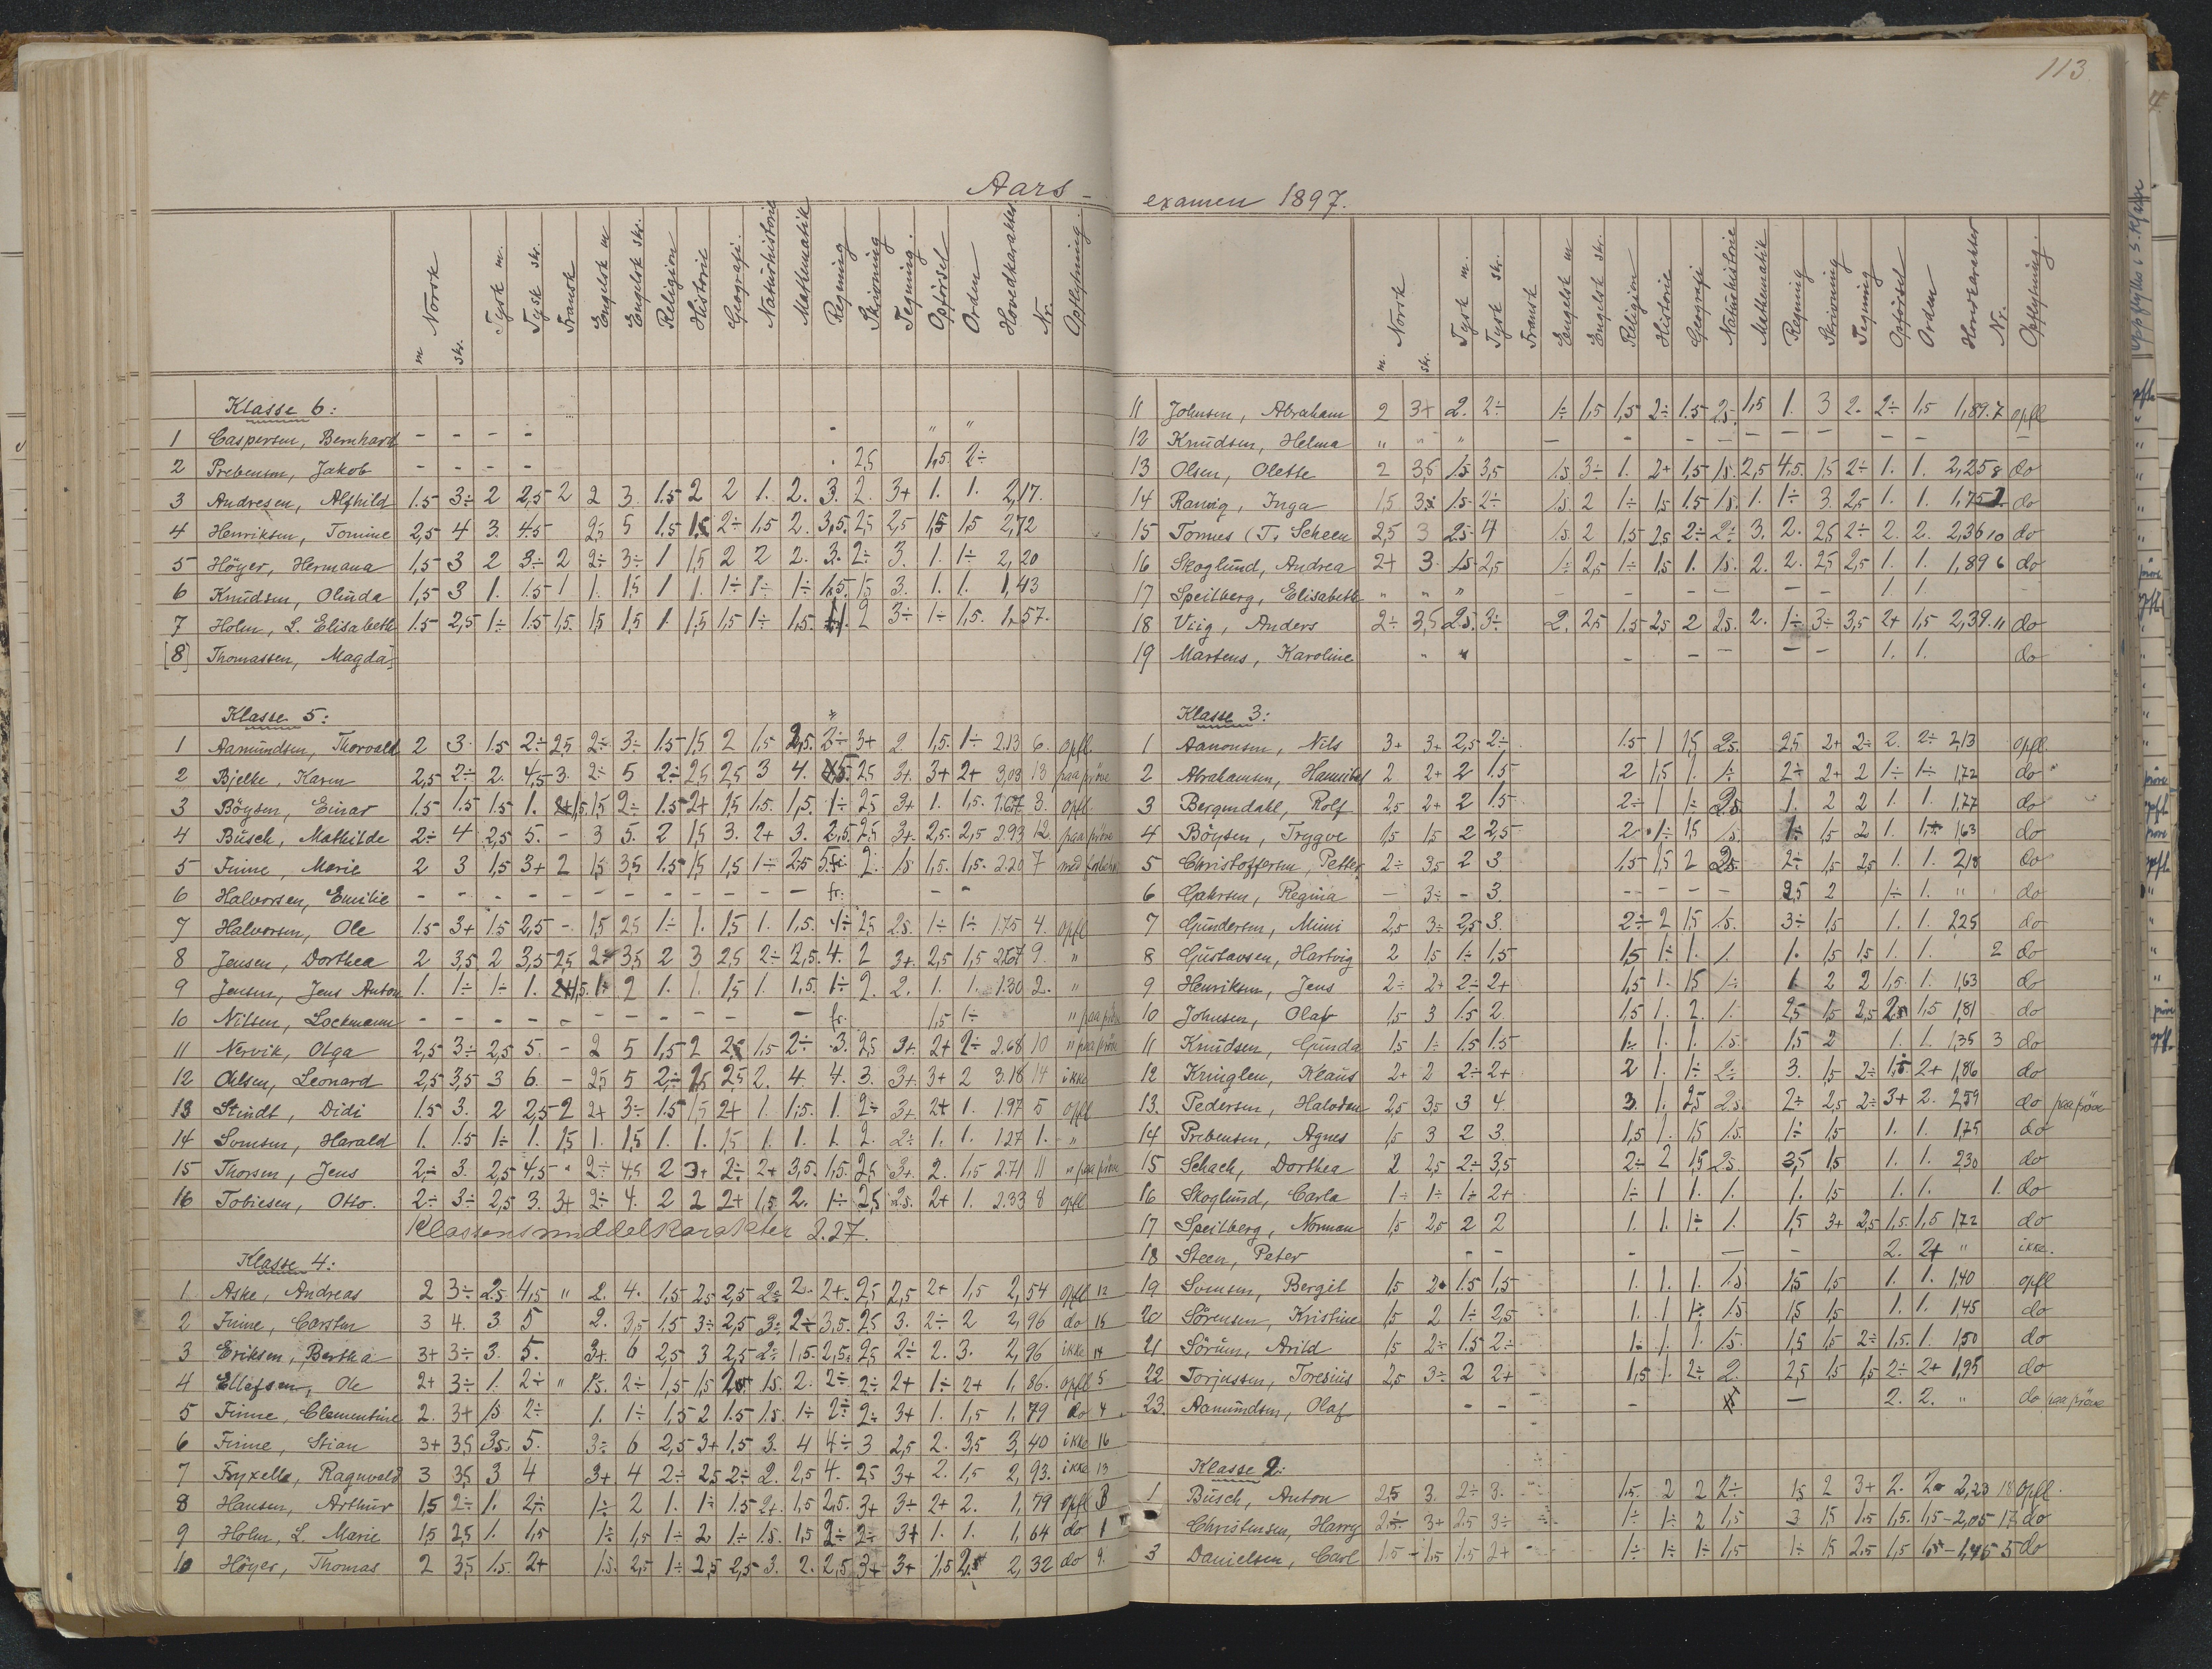 Aars-
m Norsk skr. Tysk m. Tysk skr. Fransk Engelsk m Engelsk skr. Religion Historie Geografi. Naturhistorie Mathematik Regning Skrivning Tegning. Opförsel Orden Hovedkarakter Nr. Opflytning.
Klasse 6:
1 Caspersen, Bernhard - - - - - " "
2 Prebensen, Jakob - - - - 2,5 1,5 2÷
3 Andresen, Alfhild 1.5 3÷ 2 2,5 2 2 3. 1.5 2 2 1. 2. 3. 2. 3+ 1. 1. 2,17.
4 Henriksen, Tomine 2,5 4 3. 4.5 2,5 5 1.5 2÷ 1,5 2. 3,5. 2,5 2,5 1,5 1,5 2,72
5 Höyer, Hermana 1,5 3 2 3÷ 2 2÷ 3÷ 1 1,5 2 2 2. 3. 2÷ 3. 1. 1÷ 2,20
6 Knudsen, Olinda 1,5 3 1. 1.5 1 1. 1,5 1 1. 1÷ 1÷ 1÷ 1.5. 1,5 3. 1. 1. 1,43
7 Holm, L. Elisabeth 1.5 2,5 1÷ 1.5 1,5. 1,5 1,5 1. 1,5 1,5 1÷ 1,5. 2 3÷ 1÷ 1,5. 1,57.
[8] Thomassen, Magda]
Klasse 5:
1 Aamundsen, Thorvald 2 3. 1.5 2÷ 2,5 2÷ 3÷ 1.5 1,5 2 1,5 2,5. 2÷ 3+ 2. 1,5. 1÷ 2.13 6. opfl.
2 Bjelke, Karen 2,5 2÷ 2. 4,5 3. 2÷ 5 2÷ 2,5 2,5 3 4. 2,5 3+. 3+ 2+ 3,03 13 paa pröve
3 Böysen, Einar 1.5 1.5 1.5 1. 1,5 2÷ 1.5 2+ 1,5 1.5. 1,5. 1÷ 2,5 3+ 1. 1,5. 1.67 3. opfl.
4 Busch, Mathilde 2÷ 4 2,5 5. - 3 5. 2 1,5 3. 2+ 3. 2,5. 2,5 3+. 2,5. 2,5 2.93 12 paa pröve
5 Finne, Marie 2 3 1,5 3+ 2 1,5 3,5 1.5 1,5 1,5 1÷ 2,5 2. 1,5 1,5. 1,5. 2.20 7 med
6 Halvorsen, Emilie - - - - - - - - - - - - fr. - -
7 Halvorsen, Ole 1.5 3+ 1.5 2,5 - 1,5 2,5 1÷ 1. 1,5 1. 1,5. 1÷ 2,5 2.5. 1÷ 1÷ 1.75 4. opfl
8 Jensen, Dorthea 2 3,5 2 3,5 2,5 2÷ 3,5 2 3 2,5 2÷ 2,5. 4. 2 3+. 2,5 1,5 2.67 9. "
9 Jensen, Jens Anton 1. 1÷ 1÷ 1. 1÷ 2 1. 1. 1,5 1. 1,5. 1÷ 2. 2. 1. 1. 1.30 2. "
10 Nilsen, Lockmann - - - - - - - - - - - - fr. 1,5 1÷ " paa pröve
11 Nervik, Olga 2,5 3÷ 2,5 5. - 2 5 1,5 2 2,5 1,5 2÷ 3. 2,5 3+. 2+ 2÷ 2.68 10 " paa pröve
12 Olsen, Leonard 2,5 3,5 3 6. - 2,5 5 2÷ 2,5 2,5 2. 4. 4. 3. 3+. 3+ 2 3.18 14 ikke
13 Stindt, Didi 1.5 3. 2 2,5 2 2+ 3÷ 1.5 1,5 2+ 1. 1,5. 1. 2÷ 3+ 2+ 1. 1.97 5 opfl
14 Somsen, Harald 1. 1.5 1÷ 1. 1,5 1. 1,5 1. 1. 1,5 1. 1. 1. 2. 2÷ 1. 1. 1.27 1. "
15 Thorsen, Jens 2÷ 3. 2,5 4,5 " 2÷ 4,5 2 3+ 2÷ 2+ 3,5. 1,5. 2,5 3+. 2. 1,5 2.71 11 " paa pröve
16 Tobiesen, Otto. 2÷ 3÷ 2,5 3. 3+ 2÷ 4. 2 2 2+ 1,5 2. 1÷ 2,5 2.5. 2+ 1. 2.33 8 opfl
Klassens middelkarakter 2.27.
Klasse 4:
1. Aske, Andreas 2 3÷ 2.5 4,5 " 2. 4. 1,5 2,5 2,5 2÷ 2. 2+. 2,5 2,5 2+ 1,5 2,54 opfl 12
2 Finne, Carsten 3 4. 3 5 2. 3,5 1.5 3÷ 2,5 3÷ 2÷ 3,5. 2,5 3. 2÷ 2 2,96 do 15
3 Eriksen, Bertha 3+ 3÷ 3. 5. 3+. 6 2,5 3 2,5 2÷ 1,5. 2,5. 2,5 2÷ 2. 3. 2,96 ikke 14
4 Ellefsen, Ole 2+ 3÷ 1. 2÷ " 1.5. 2÷ 1,5 1,5 1.5. 2. 2÷ 2÷ 2+ 1÷ 2+ 1,86. opfl 5
5 Finne, Clementine 2. 3+ 1.5 2÷ 1. 1÷ 1,5 2 1.5 1.5. 1÷ 2÷ 2÷ 3+ 1. 1,5 1,79 do 4
6 Finne, Stian 3+ 3,5 3.5. 5. 3÷ 6 2,5 3+ 1.5 3. 4 4÷ 3 2,5 2. 3,5 3,40 ikke 16
7 Fryxell, Ragnvald 3 3,5 3 4 3+. 4 2÷ 2,5 2÷ 2. 2,5 4. 2,5 3+ 2. 1,5 2,93. ikke 13
8 Hansen, Arthur 1,5 2÷ 1. 2÷ 1÷ 2 1. 1÷ 1.5 2+. 1,5 2,5. 3+ 3÷ 2+ 2. 1,79 opfl 3
9 Holm, L. Marie 1,5 2,5 1. 1,5 1÷ 1,5 1÷ 2 1÷ 1.5. 1,5 2÷ 2÷ 3+ 1. 1. 1,64 do 1
10 Höyer, Thomas 2 3,5 1.5. 2+ 1.5. 2,5 1÷ 2,5 2,5 3. 2. 2,5 3+ 3+ 1,5 2.5 2,32 do 9.
113
examen 1897.
m. Norsk skr. Tysk m. Tysk skr. Fransk Engelsk m Engelsk skr. Religion Historie Geografi Naturhistorie Mathematik Regning Skrivning Tegning Opförsel Orden Hovedkarakter Nr. Opflytning.
11 Johnsen, Abraham 2 3+ 2. 2÷ 1÷ 1,5 1,5 2÷ 1.5 2,5. 1,5 1. 3 2. 2÷ 1,5 1,89. 7 opfl
12 Knudsen, Helma " " " - - - - - - - - - -
13 Olsen, Olette 2 3,5 1.5 3,5 1.5 3÷ 1. 2+ 1,5 1.5. 2,5 4.5. 1,5 2÷ 1. 1. 2,25 8 do
14 Ranvig, Inga 1,5 3÷ 1.5 2÷ 1.5. 2 1÷ 1,5 1.5 1.5. 1. 1÷ 3. 2,5 1. 1. 1,75 2. do
15 Tomes (T. Scheen 2,5 3 2.5 4 1.5. 2 1,5 2,5 2÷ 2÷ 3. 2. 2,5 2÷ 2. 2. 2,36 10 do
16 Skoglund, Andrea 2+ 3. 1.5 2,5 1÷ 2,5 1÷ 1,5 1. 1.5. 2. 2. 2,5 2,5 1. 1. 1,89 6 do
17 Speilberg, Elisabeth " " " - - - - - - - - 1. 1. -
18 Viig, Anders 2÷ 3,5 2.5. 3÷ 2. 2,5 1.5 2,5 2 2.5. 2. 1÷ 3÷ 3,5 2+ 1,5 2,39. 11 do
19 Martens, Karoline " " - - - - - 1. 1. do
Klasse 3:
1 Aanonsen, Nils 3+ 3+ 2,5 2÷ 1.5 1 1,5 2.5. 2,5 2+ 2÷ 2. 2÷ 2,13 opfl.
2 Abrahamsen, Hannibal 2 2+ 2 1.5 2 1,5 1. 1÷ 2÷ 2+ 2 1÷ 1÷ 1,72 do "
3 Bergendahl, Rolf 2,5 2+ 2 1.5 2÷ 1 1÷ 2.5. 1. 2 2 1. 1. 1,77 do
4 Böysen, Trygve 1,5 1,5 2 2,5 2 1÷ 1,5 1.5. 1÷ 1,5 2 1. 1,63 do
5 Christoffersen, Petter 2÷ 3,5 2 3. 1.5 1,5 2 2.5. 2÷ 1,5 2,5 1. 1. 2,18 do
6 Gahrsen, Regina - 3÷ - 3. - - - - 2,5 2 1÷ 1. " do
7 Gundersen, Mimi 2,5 3÷ 2,5 3. 2÷ 2 1,5 1.5. 3÷ 1,5 1. 1. 2,25 do
8 Gustavsen, Hartvig 2 1,5 1÷ 1,5 1,5 1÷ 1. 1. 1. 1,5 1,5 1. 1. 2 do
9 Henriksen, Jens 2÷ 2+ 2÷ 2+ 1,5 1. 1,5 1÷ 1. 2 2 1,5. 1. 1,63 do
10 Johnsen, Olaf 1,5 3 1.5 2. 1,5 1. 2. 1. 2,5 1,5 2,5 1,5 1,81 do
11 Knudsen, Gunda 1,5 1÷ 1.5 1.5 1÷ 1. 1. 1.5. 1,5 2 1. 1. 1,35 3 do
12 Kringlen, Klaus 2+ 2 2÷ 2+ 2 1. 1÷ 2÷ 3. 1,5 2÷ 1,5 2+ 1,86 do
13. Pedersen, Halvdan 2,5 3,5 3 4. 3. 1. 2,5 2.5. 2÷ 2,5 2÷ 3+ 2. 2,59 do paa pröve
14 Prebensen, Agnes 1,5 3 2 3. 1,5 1. 1,5 1.5. 1÷ 1,5 1. 1. 1,75 do
15 Schach, Dorthea 2 2,5 2÷ 3,5 2÷ 2 1,5 2.5. 3,5 1,5 1. 1. 2,30 do
16 Skoglund, Carla 1÷ 1÷ 1÷ 2+ 1÷ 1 1. 1. 1. 1,5 1. 1. 1. do
17 Speilberg, Norman 1,5 2,5 2 2 1. 1. 1÷ 1. 1,5 3+ 2,5 1,5. 1,5 1,72 do
18 Steen, Peter - - - - - 2. 2+ " ikke.
19 Somsen, Bergit 1,5 2. 1.5 1,5 1. 1. 1. 1.5. 1,5 1,5 1. 1. 1,40 opfl
20 Sörensen, Kristine 1,5 2 1÷ 2,5 1. 1 1÷ 1.5 1,5 1,5 1. 1. 1,45 do
21 Sörum, Arild 1,5 2÷ 1.5 2÷ 1÷ 1. 1. 1.5. 1,5 1,5 2÷ 1,5. 1. 1,50 do
22 Torjussen, Toresius 2,5 3÷ 2 2+ 1,5 1. 2÷ 2. 2,5 1,5 1,5 2÷ 2+ 1,95 do
23. Aamundsen, Olaf - - - - 2. 2. " do paa pröve
Klasse 2:
1 Busch, Anton 2,5 3. 2÷ 3. 1.5. 2 2 2÷ 1,5 2 3+ 2. 2,23 18 opfl.
Christensen, Harry 3+ 2,5 3÷ 1÷ 1÷ 2 1,5 3 1,5 1.5 1,5. 1,5 - 2,05 do
3 Danielsen, Carl 1.5 - 1.5 1.5 2+ 1÷ 1÷ 1÷ 1,5 1÷ 1,5 2,5 1,5 - 1,45 5 do